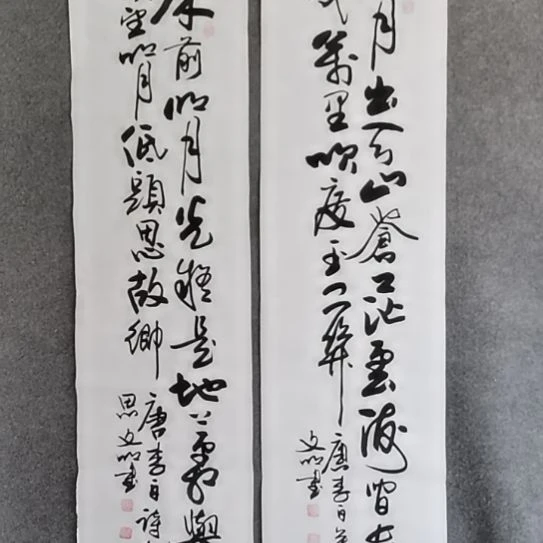 月出天山蒼茫雲海間長
幾萬里吹度玉門關
唐李白
文明書
床前明月光疑是地上霜舉
望明月低頭思故鄉
唐李白詩
思文明書